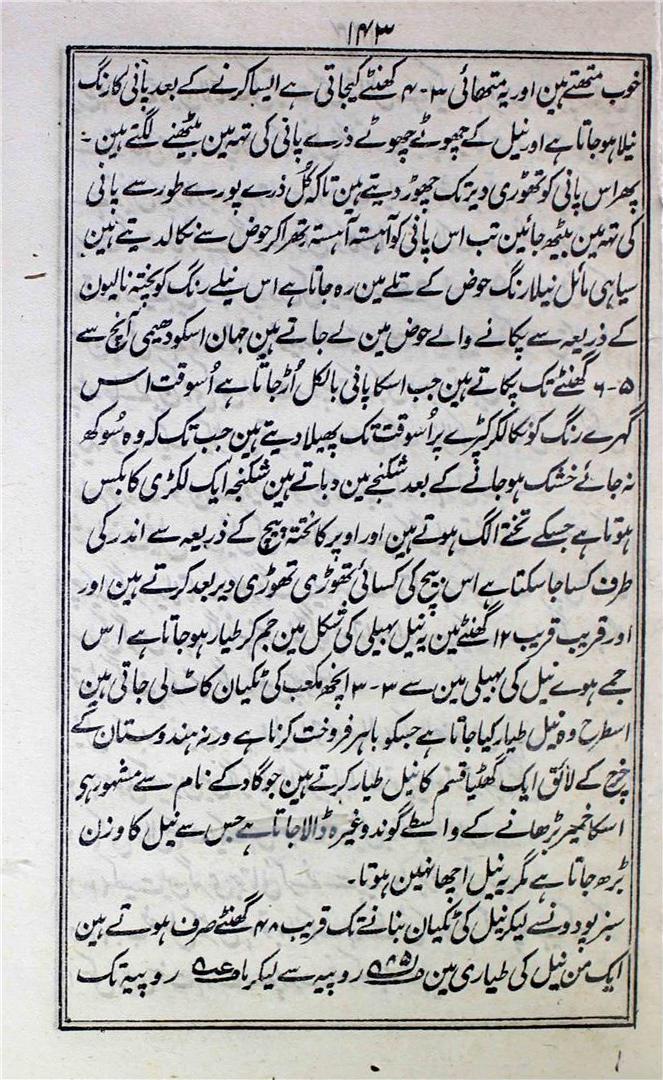 ۱۴۳
خوب متھتے ہین اور یہ متھائی ۳-۴ گھنٹے کیجاتی ہے ایسا کرنے کے بعد پانی کا رنگ
نیلا ہو جاتا ہے اور نیل کے چھوٹے چھوٹے ذرے پانی کی تہ مین بیٹھنے لگتے ہین -
پھر اس پانی کو تھوڑی دیر تک چھوڑ دیتے ہین تاکہ کُل ذرے پورے طور سے پانی
کی تہ مین بیٹھ جائین تب اس پانی کو آہستہ آہستہ نتھرا کر حوض سے نکالدیتے ہین
سیاہی مائل نیلا رنگ حوض کے تلے مین رہ جاتا ہے اس نیلے رنگ کو پختہ نالیون
کے ذریعہ سے پکانے والے حوض مین لے جاتے ہین جہان اسکو دھیمی آنچ سے
۵-۶ گھنٹے تک پکاتے ہین جب اسکا پانی بالکل اُڑ جاتا ہے اُسوقت اس
گہرے رنگ کو نکالکر کپڑے پر اُسوقت تک پھیلا دیتے ہین جب تک کہ وہ سُوکھ
نہ جائے خشک ہو جانے کے بعد شکنجے مین دباتے ہین شکنجہ ایک لکڑی کا بکس
ہوتا ہے جسکے تختے الگ ہوتے ہین اور اوپر کا تختہ پیچ کے ذریعہ سے اندر کی
طرف کسا جا سکتا ہے اس پیچ کی کسائی تھوڑی تھوڑی دیر بعد کرتے ہین اور
اور قریب قریب ۱۲ گھنٹے مین یہ نیل بہیلی کی شکل مین جم کر طیار ہو جاتا ہے اس
جمے ہوے نیل کی بہیلی مین سے ۳-۳ انچھ مکعب کی ٹکیان کاٹ لی جاتی ہین
اسطرح وہ نیل طیار کیا جاتا ہے جسکو باہر فروخت کرنا ہے ورنہ ہندوستان کے
خرچ کے لائق ایک گھٹیا قسم کا نیل طیار کرتے ہین جو گاد کے نام سے مشہور ہی
اسکا خمیر بڑھانے کے واسطے گوند وغیرہ ڈالا جاتا ہے جس سے نیل کا وزن
بڑھ جاتا ہے مگر یہ نیل اچھا نہین ہوتا۔
سبز پودونسے لیکر نیل کی ٹکیان بنانے تک قریب ۴۸ گھنٹے صرف ہوتے ہین
ایک من نیل کی طیاری مین روپیہ سے لیکر روپیہ تک